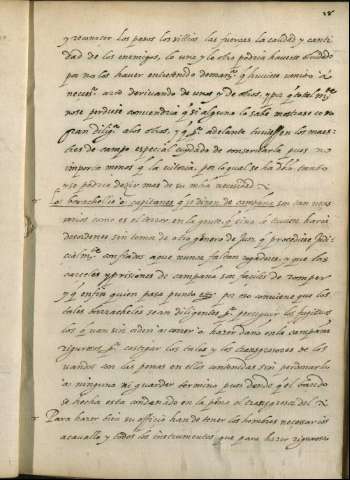 y reconocer los pasos los sitios las fuerzas la calidad y canti
dad de los enemigos, lo uno y lo otro podria haverse olvidado
por no los haver entretenido de man.ª q huviese venido a
neces.º arte derivando de unos y de otros, y pa q total m.te
no se perdiese convendria q si alguno la sabe mostrase con
gran dilig.ª a los otros, y q p.ª adelante tuviesen los maes
tres de campo especial cuydado de conservarla pues no
importa menos q la vitoria, por lo qual se ha de
y se podria dezir mas de su mucha necesidad
Los barracheles o capitanes q se dizen de campaña son tan neces
sarios como es el temor en la gente, q si no le tuviese haria
desordenes sin tema de otro género de Just.ª q procediese Judi
cialm.te confiados a que nunca faltan cogedores, y que las
carceles y prisiones de campaña son faciles de romper
y q en fin quien pasa punto por eso conviene que los
tales barracheles sean diligentes p.ª perseguir los fugitivos
los q van sin orden a comer o hazer daño en la campaña
rigurosos p.ª castigar los tales y los transgresores de los
vandos con las penas en ellos contenidas sin perdonarla
a ninguno ni guardar termino pues desde q el vando
se hecha esta condenado en la pena el transgresor del
Para hazer bien su officio han de tener los hombres necesarios
a cavallo y todos los instrumentos que para hazer rigurosa